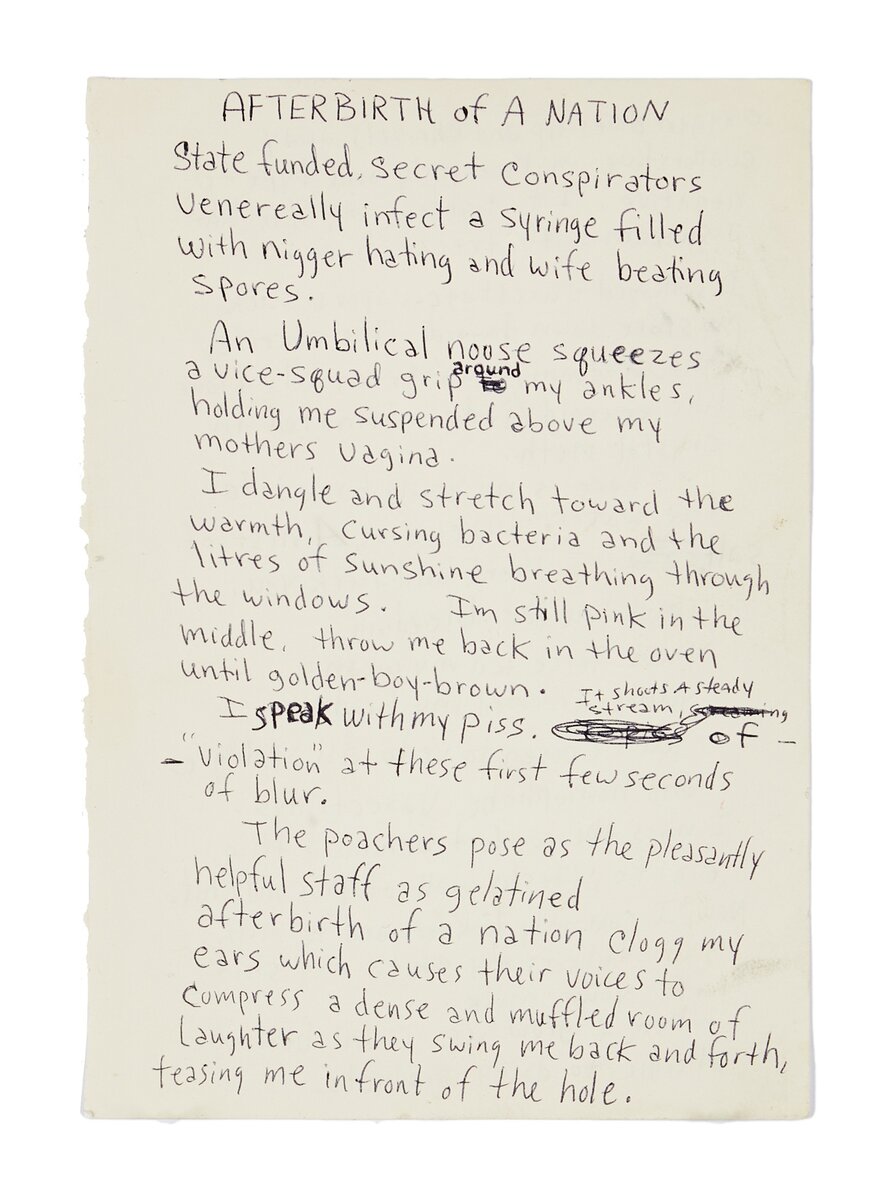 AFTERBIRTH of A NATION
State funded, secret conspirators
venereally infect a syringe filled
with nigger hating and wife beating
spores.
An Umbilical noose squeezes
a vice-squad grip around my ankles,
holding me suspended above my
mothers vagina.
I dangle and stretch toward the
warmth, cursing bacteria and the
litres of sunshine breathing through
the windows. Im still pink in the
middle, throw me back in the oven
until golden-boy-brown.
I speak with my piss. It shoots A steady stream, of -
- "violation" at these first few seconds
of blur.
The poachers pose as the pleasantly
helpful staff as gelatined
afterbirth of a nation clogg my
ears which causes their voices to
compress a dense and muffled room of
Laughter as they swing me back and forth,
teasing me infront of the hole.